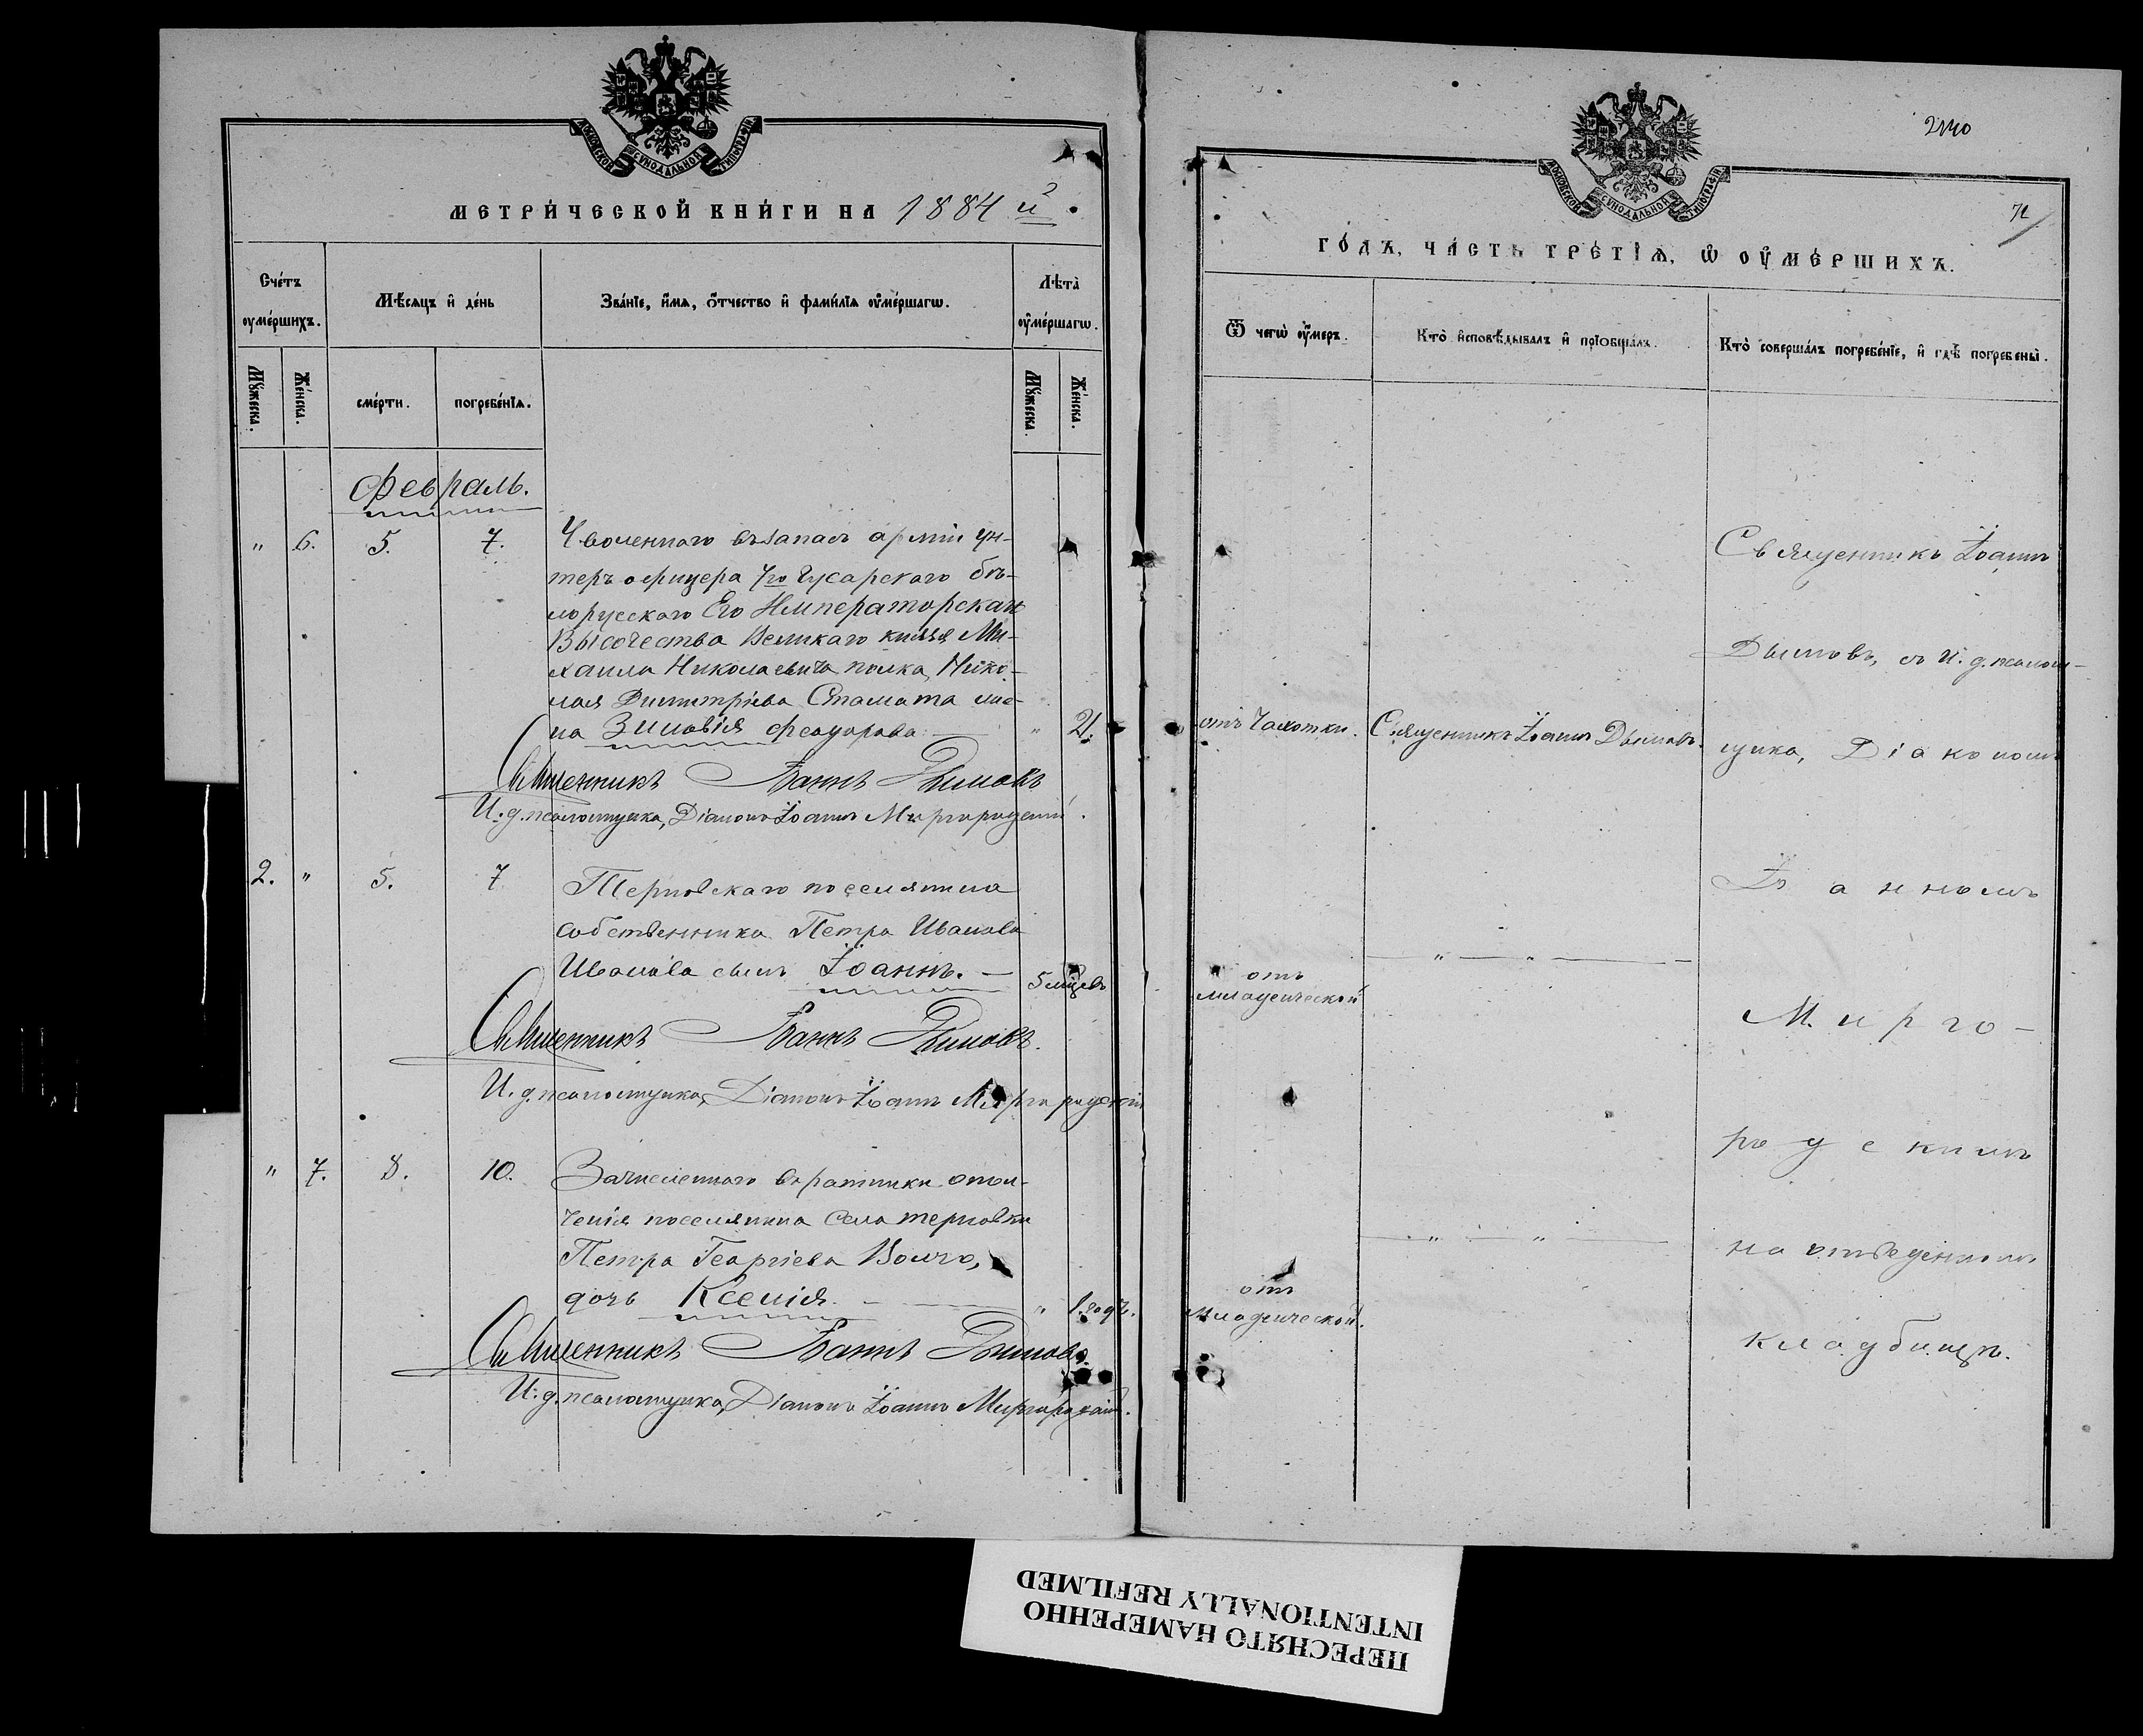 МОСКОВСКОЙ СѴНОДАЛЬНОЙ ТИПОГРАФІИ
МЕТРИ́ЧЕСКОЙ КНИ́ГИ НА 1884 й
Сче́тъ оумéршихъ.
Мѣ́сяцъ и҆ де́нь
Зва́нїе, и҆́мя, ѻ҆́тчество и҆ фами́лїя оуме́ршагѡ.
Лѣ́та оуме́ршагѡ.
Му́жеска.
Же́нска.
сме́рти.
погребе́нїя.
Му́жеска.
Же́нска.
Февраль.
" 6. 5. 7. Уволеннаго въ запасъ арміи ун-
теръ офицера 7го Гусарскаго Бѣ-
лорусскаго Его Императорскаго
Высочества Великаго князя Ми-
хаила Николаевича полка, Нико-
лая Димитріева Стамата же-
на Зиновія Феодорова. — " 21.
Священникъ Іоаннъ Дымовъ
И. д. псаломщика, Діаконъ Іоаннъ Миргородскій.
2. " 5. 7 Терновскаго поселянина
собственника Петра Иванова
Иванова сынъ Іоаннъ. — 5 мѣ
Священникъ Іоаннъ Дымовъ.
И. д. псаломщика, Діаконъ Іоаннъ Миргородскій
" 7. 8. 10. Зачисленнаго въ ратники опол-
ченія поселянина села Терновки
Петра Георгіева Волчо,
дочь Ксенія. — " 1. годъ.
Священникъ Іоаннъ Дымовъ.
И. д. псаломщика, Діаконъ Іоаннъ Миргородскій.
2140
72
МОСКОВСКОЙ СѴНОДАЛЬНОЙ ТИПОГРАФІИ
ГО́ДЪ, ЧА́СТЬ ТРЕ́ТЇЯ, Ѡ҆ ОУМЕ́РШИХЪ.
Ѿ чегѡ̀ оу́меръ.
Кто̀ и҆сповѣ́дывалъ и҆ прїобща́лъ.
Кто̀ соверша́лъ погребе́нїе, и҆ гдѣ̀ погребены̀.
отъ Чахотки.
Священникъ Іоаннъ Дымовъ.
отъ
младенческой
— " — " —
отъ
младенческой.
— " — " —
Священникъ Іоаннъ
Дымовъ, съ И. д. псалом-
щика, Діакономъ
Іоанномъ
Мирго-
родскимъ
на отведенномъ
кладбищѣ.
ПЕРЕСНЯТО НАМЕРЕННО
INTENTIONALLY REFILMED